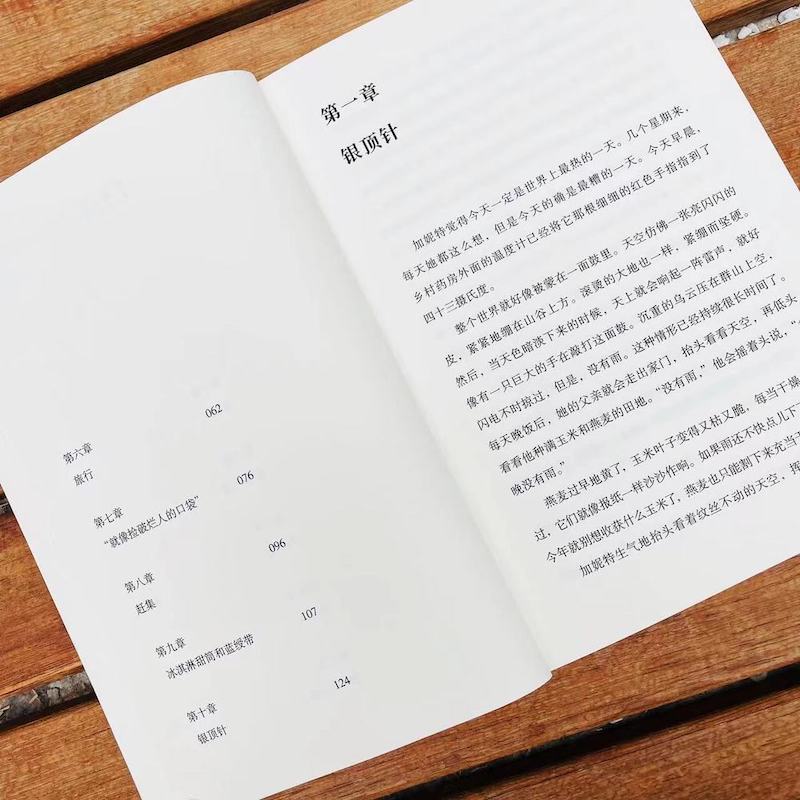 第六章 062
旅行
第七章 076
“就像捡破烂人的口袋”
第八章 096
赶集
第九章 107
冰淇淋甜筒和蓝绶带
第十章 124
银顶针
第一章
银顶针
加妮特觉得今天一定是世界上最热的一天。几个星期来，
每天她都这么想，但是今天的确是最糟的一天。今天早晨，
乡村药房外面的温度计已经将它那根细细的红色手指指到了
四十三摄氏度。
整个世界就好像被蒙在一面鼓里。天空仿佛一张亮闪闪的
皮，紧紧地绷在山谷上方。滚烫的大地也一样，紧绷而坚硬。
然后，当天色暗淡下来的时候，天上就会响起一阵雷声，就好
像有一只巨大的手在敲打这面鼓。沉重的乌云压在群山上空，
闪电不时掠过，但是，没有雨。这种情形已经持续很长时间了。
每天晚饭后，她的父亲就会走出家门，抬头看看天空，再低头
看看他种满玉米和燕麦的田地。“没有雨，”他会摇着头说，“
晚没有雨。”
燕麦过早地黄了，玉米叶子变得又枯又脆，每当干燥
过，它们就像报纸一样沙沙作响。如果雨还不快点儿下
今年就别想收获什么玉米了，燕麦也只能割下来充当
加妮特生气地抬头看着纹丝不动的天空，挥